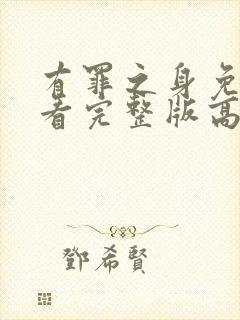 有罪之身免
看完整版高
鄧希賢